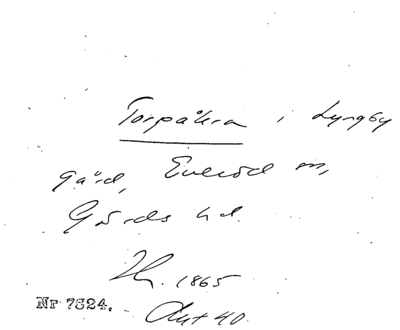 Torpåkra i Lyngby
gård, Everöd sn,
Gärds hd.
1865
Nr 7324.
Akt 40.